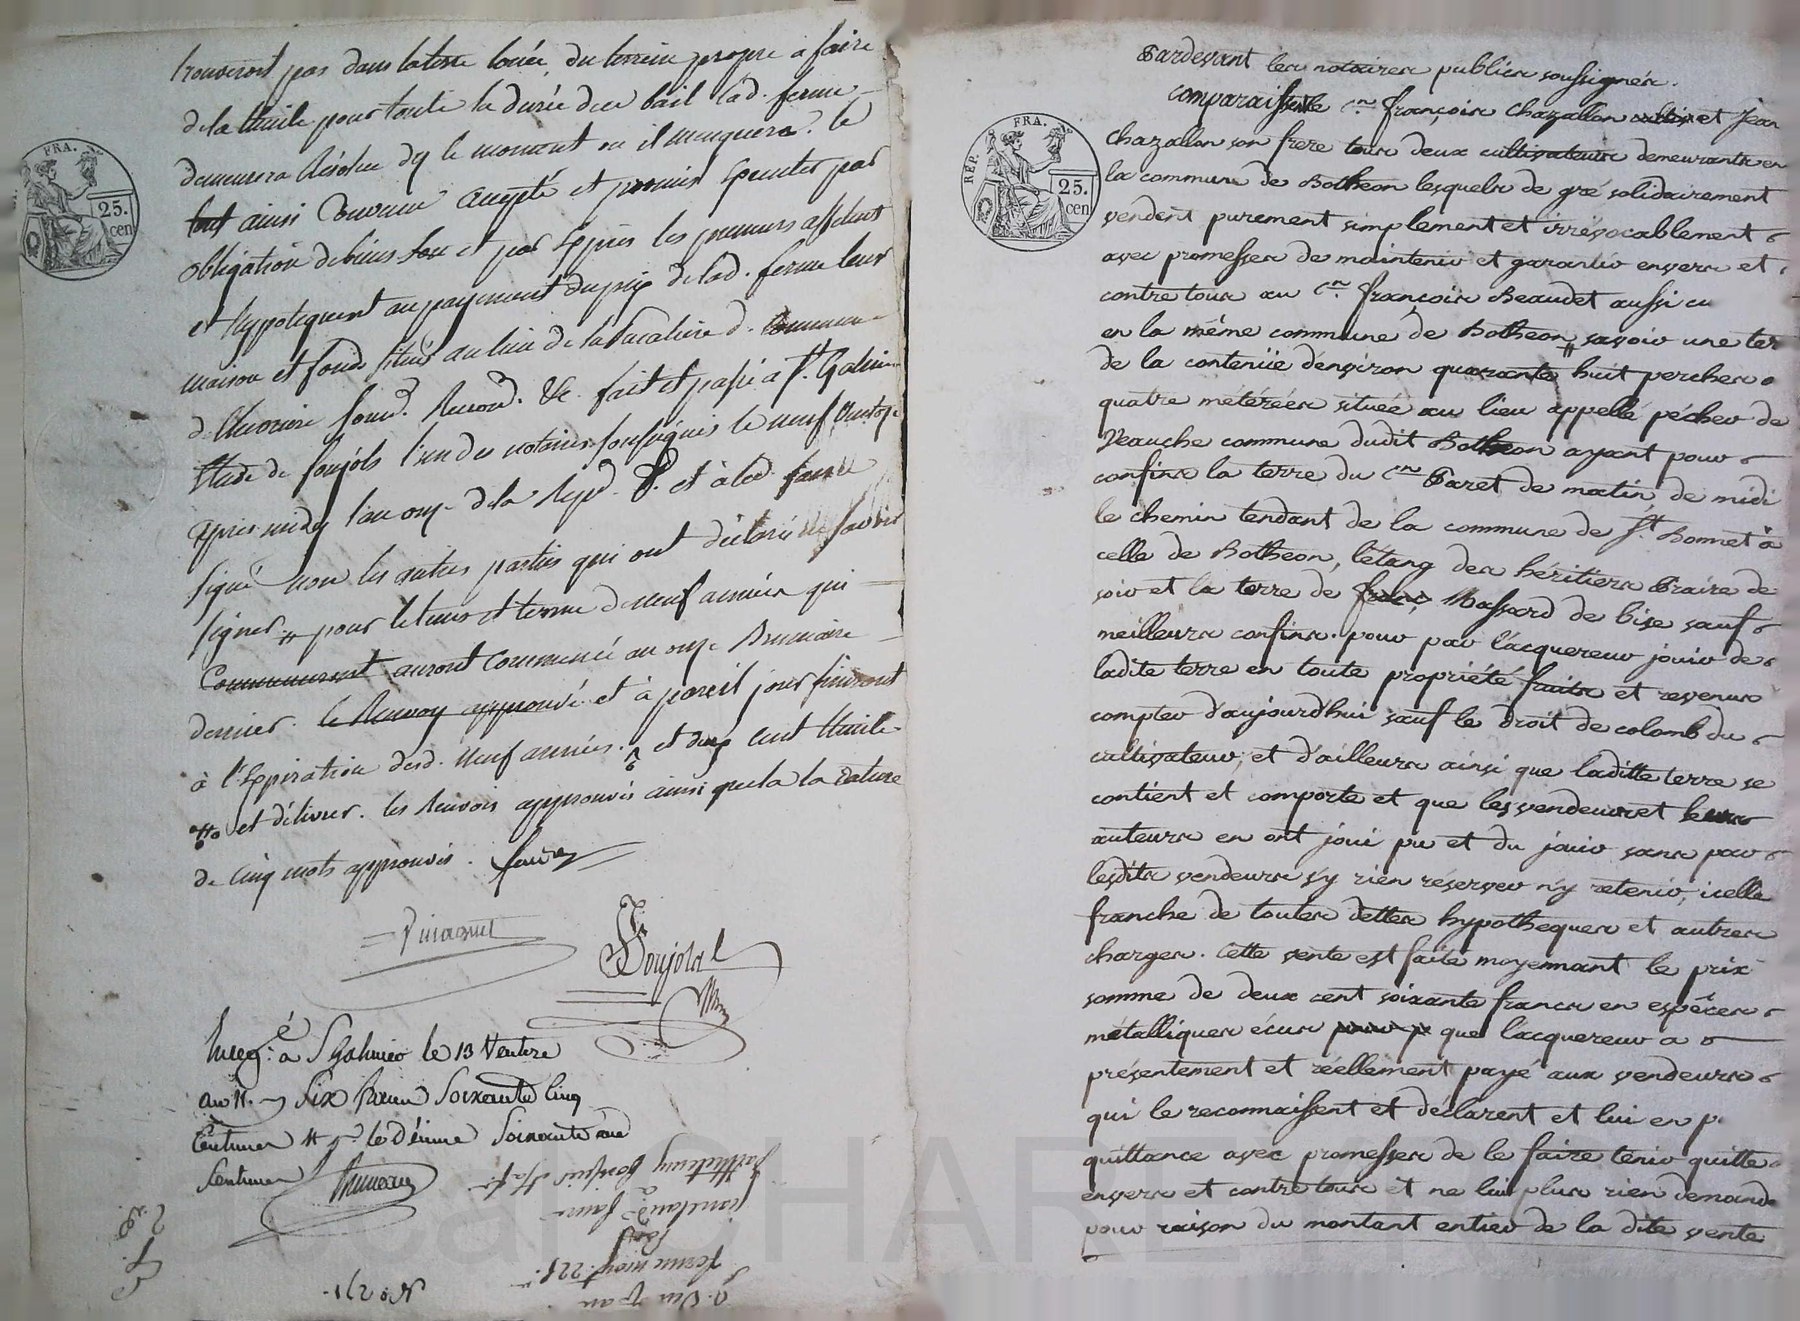 trouveront pas dans la terre louée, du terrein propre a faire
de la thuile pour toute la durée du bail lad. ferme
demeurera résolue dez le moment ou il manquera. le
tout ainsi convenu accepté et promis executer par
obligation de biens
et hyppotequent au payement du prix de lad. ferme leur
maison et fonds situés au lieu de la d. commune
fait et passé a St. Galmier
étude de Soujols l'un des notaires soussignés le neuf ventose
après midy l'an onze de la Rep. et à led. faure
signé non les autres parties qui ont déclaré ne savoir
signer # pour le tems et terme de neuf années qui
Commenceront auront commencé au onze Brumaire
dernier. le Renvoy approuvé et à pareil jour finiront
à l'expiration desd. neuf années. et deux cent thuile
et délivrer. les renvois approuvés ainsi que la rature
de cinq mots approuvés. faure
Soujols
Enreg. é a St Galmier le 13 Ventose
an 11. Six francs Soixante cinq
Centimes le Décime Soixante six
Centimes
REP. FRA.
25. cen
Pardevant les notaires publics soussignés.
comparaissent le cn. françois chazallon et Jean
chazallon son frere tous deux cultivateurs demeurants en
la commune de Botheon lesquels de gré solidairement
vendent purement simplement et irrévocablement
avec promesses de maintenir et garantir envers et
contre tous au cn. françois Beaudet aussi cu
en la même commune de Botheon # savoir une ter
de la contenüe d'environ quarante huit perches o
quatre méterées située au lieu appellé pécher de
Veauche commune dudit Botheon ayant pour
confins la terre du cn Paret de matin de midi
le chemin tendant de la commune de St. Bonnet à
celle de Botheon, l'étang des héritiers Praire de
soir et la terre de Massard de bise sauf
meilleurs confins. pour par l'acquereur jouir de
ladite terre en toute propriété fruits et revenus
compter d'aujourd'hui sauf le droit de colomb du
cultivateur, et d'ailleurs ainsi que laditte terre se
contient et comporte et que les vendeurs et leurs
auteurs en ont joui pu et du jouir sans par
lesdits vendeurs s'y rien réserver n'y retenir, icelle
franche de toutes dettes hypotheques et autres
charges. cette vente est faite moyennant le prix
somme de deux cent soixante francs en espéces
métalliques écus que l'acquereur a
présentement et réellement payé aux vendeurs
qui le reconnaissent et déclarent et lui en p.
quittance avec promesses de le faire tenir quitte
envers et contre tous et ne lui plus rien demande
pour raison du montant entier de la dite vente
REP. FRA.
25. cen